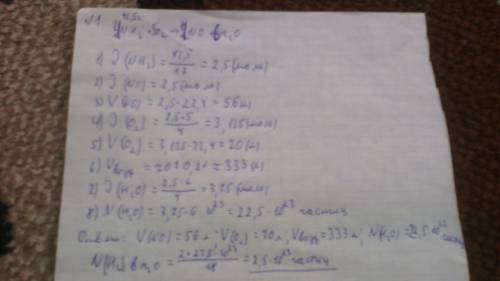 №1 42,5г
4NH₃+5O₂→4NO+6H₂O
1) ν(NH₃) = 42,5/17 = 2,5 (моль)
2) ν(NO) = 2,5 (моль)
3) V(NO) = 2,5·22,4 = 56 (л)
4) ν(O₂) = 2,5·5/4 = 3,125 (моль)
5) V(O₂) = 3,125·22,4 = 70 (л)
6) Vвозд = 70:0,21 = 333 (л)
7) ν(H₂O) = 2,5·6/4 = 3,75 (моль)
8) N(H₂O) = 3,75·6·10²³ = 22,5·10²³ частиц
Ответ: V(NO) = 56 л; V(O₂) = 70 л; Vвозд = 333 л; N(H₂O) = 22,5·10²³ частиц
N(H₂) в H₂O = 2·22,5·10²³/18 = 2,5·10²³ частиц